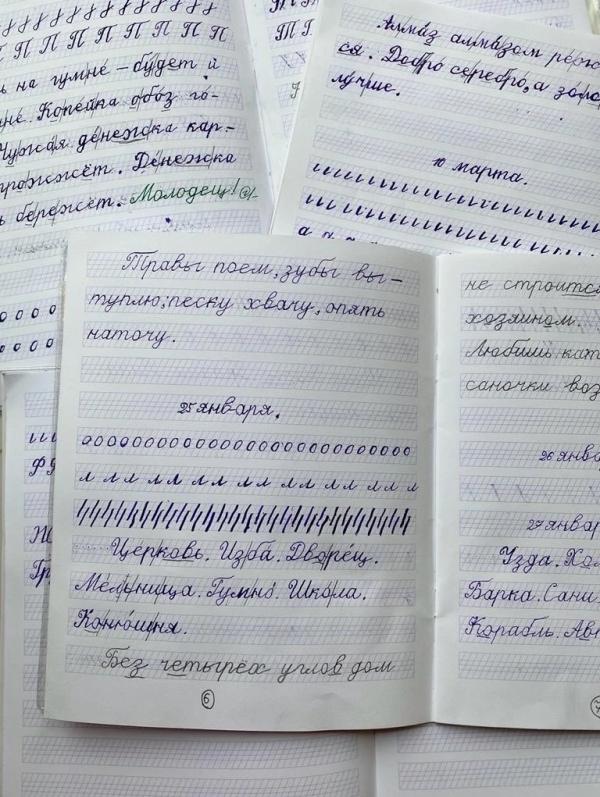 П П П П П П П П П
на гумне – будет и
Копейка обоз го-
Чужая денежка кар-
прожжёт. Денежка
бережёт. Молодец!
Алмаз алмазом реж
ся. Добро серебро, а зо
лучше.
10 марта.
Травы поем, зубы вы-
туплю; песку хвачу, опять
наточу.
25 января.
о о о о о о о о о о о о о о о о о о о о о о о о о о о
л л л л л л л л л л л л л л л
Церковь. Изба. Дворец.
Мельница. Гумно. Школа.
Конюшня.
Без четырёх углов дом
6
не строится
хозяином.
Любишь кат
саночки воз
26 янва
27 январ
Узда. Хо
Барка. Сани.
Корабль. Ав
7